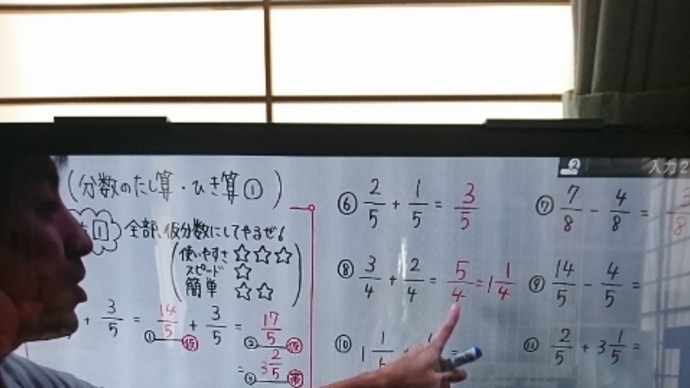 (分数のたし算・ひき算①)
1 全部、仮分数にしてやるぜ!
(使いやすさ ☆☆☆
スピード ☆
簡単 ☆☆)
+ 3/5 = 14/5 + 3/5 = 17/5
① 仮 ② 仮
= 3 2/5
帯
⑥ 2/5 + 1/5 = 3/5
⑦ 7/8 - 4/8 = 3/8
⑧ 3/4 + 2/4 = 5/4 = 1 1/4
⑨ 14/5 - 4/5 =
⑩ 1
⑪ 2/5 + 3 1/5 =
2
入力2